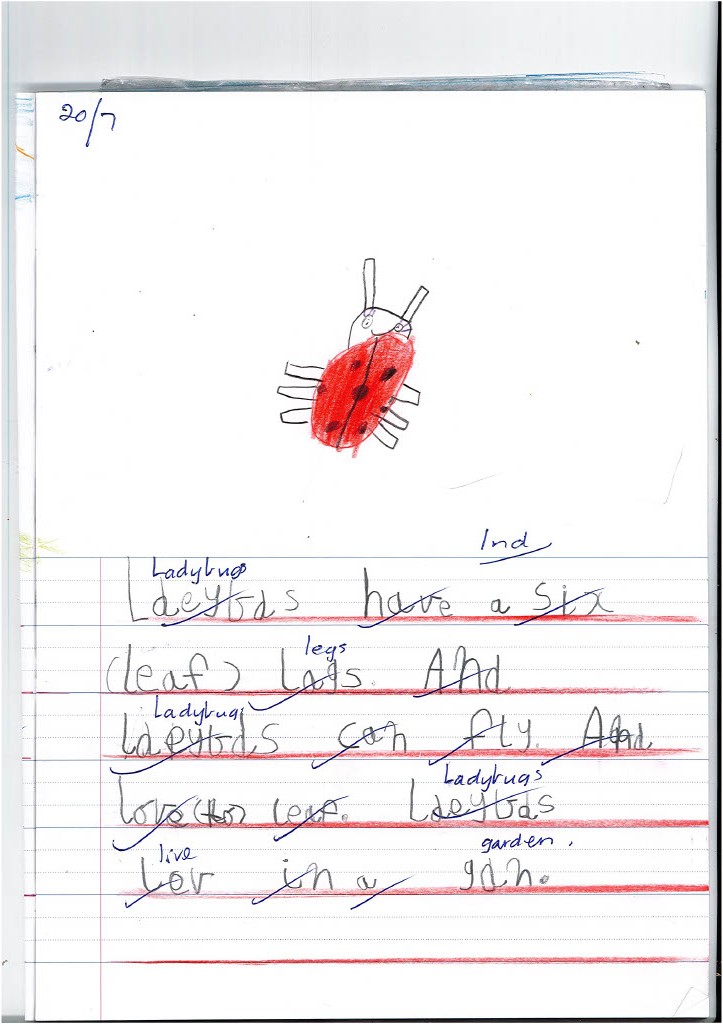 20/7
Ind
Ladybugs
Ldeybds have a six
legs
(leaf) Lags. And
Ladybugs
Ldeybds can fly. And
Ladybugs
Love (the) leaf. Ldeybds
live garden.
Lov in a gdn.